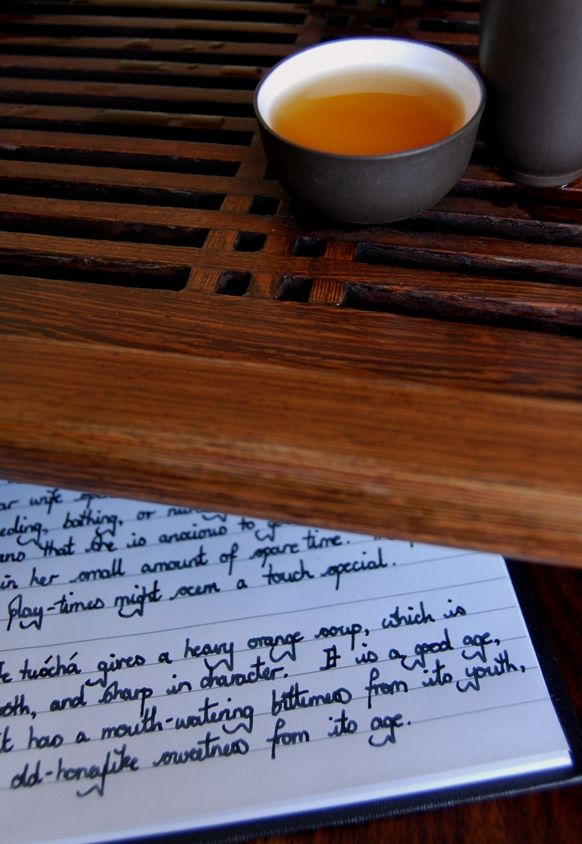 ar wife
eeding, bathing, or
ens that she is anxious to
in her small amount of spare time.
play-times might seem a touch special.
tuóchá gives a heavy orange soup, which is
oth, and sharp in character. It is a good age,
it has a mouth-watering bitterness from its youth,
old-honeylike sweetness from its age.